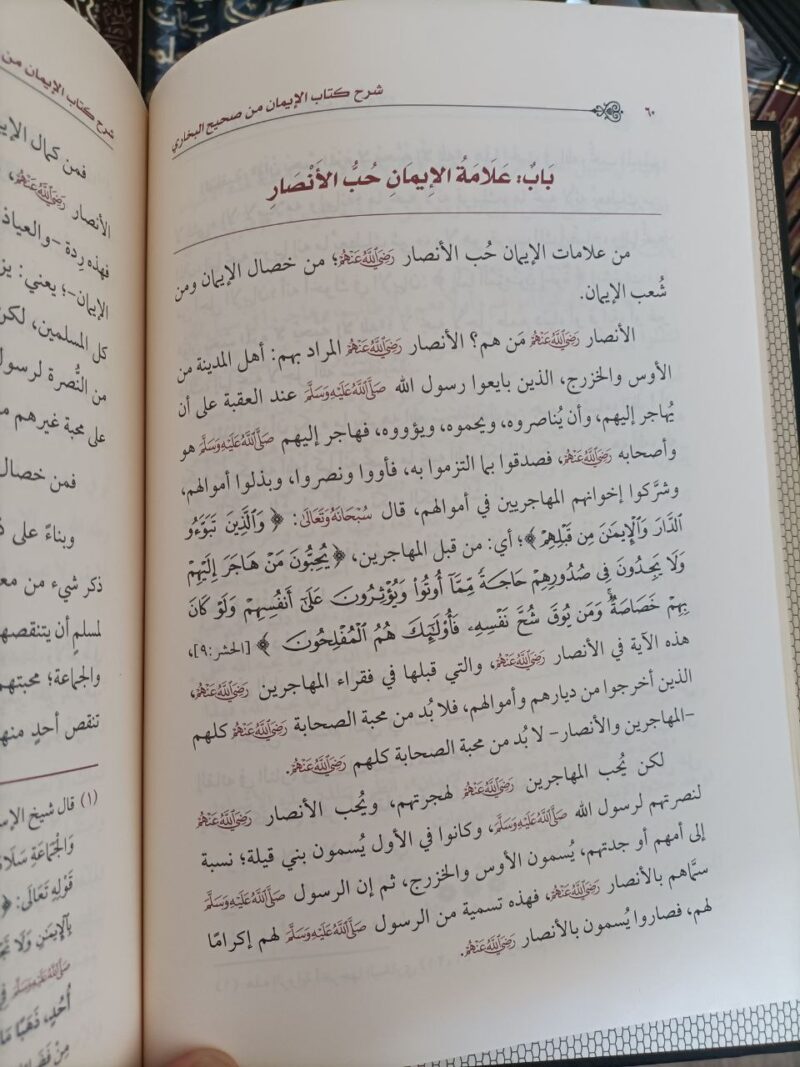 شرح كتاب الإيمان من صحيح البخاري
٦٠
بَابٌ: عَلَامَةُ الإِيمَانِ حُبُّ الأَنْصَارِ
من علامات الإيمان حُب الأنصار رَضِيَاللَّهُعَنْهُمْ؛ من خصال الإيمان ومن
شُعب الإيمان.
الأنصار رَضِيَاللَّهُعَنْهُمْ مَن هم؟ الأنصار رَضِيَاللَّهُعَنْهُمْ المراد بهم: أهل المدينة من
الأوس والخزرج، الذين بايعوا رسول الله صَلَّىاللَّهُعَلَيْهِوَسَلَّمَ عند العقبة على أن
يُهاجر إليهم، وأن يُناصروه، ويحموه، ويؤووه، فهاجر إليهم صَلَّىاللَّهُعَلَيْهِوَسَلَّمَ هو
وأصحابه رَضِيَاللَّهُعَنْهُمْ، فصدقوا بما التزموا به، فأووا ونصروا، وبذلوا أموالهم،
وشرَّكوا إخوانهم المهاجريين في أموالهم، قال سُبْحَانَهُوَتَعَالَى: ﴿وَالَّذِينَ تَبَوَّءُو
الدَّارَ وَالْإِيمَٰنَ مِن قَبْلِهِمْ﴾؛ أي: من قبل المهاجرين، ﴿يُحِبُّونَ مَنْ هَاجَرَ إِلَيْهِمْ
وَلَا يَجِدُونَ فِي صُدُورِهِمْ حَاجَةً مِّمَّا أُوتُوا وَيُؤْثِرُونَ عَلَىٰ أَنفُسِهِمْ وَلَوْ كَانَ
بِهِمْ خَصَاصَةٌ وَمَن يُوقَ شُحَّ نَفْسِهِۦ فَأُوْلَٰٓئِكَ هُمُ الْمُفْلِحُونَ﴾ [الحشر:٩]،
هذه الآية في الأنصار رَضِيَاللَّهُعَنْهُمْ، والتي قبلها في فقراء المهاجرين رَضِيَاللَّهُعَنْهُمْ،
الذين أخرجوا من ديارهم وأموالهم، فلا بُد من محبة الصحابة رَضِيَاللَّهُعَنْهُمْ كلهم
-المهاجرين والأنصار- لا بُد من محبة الصحابة كلهم رَضِيَاللَّهُعَنْهُمْ.
لكن يُحب المهاجرين رَضِيَاللَّهُعَنْهُمْ لهجرتهم، ويُحب الأنصار رَضِيَاللَّهُعَنْهُمْ
لنصرتهم لرسول الله صَلَّىاللَّهُعَلَيْهِوَسَلَّمَ، وكانوا في الأول يُسمون بني قيلة؛ نسبة
إلى أمهم أو جدتهم، يُسمون الأوس والخزرج، ثم إن الرسول صَلَّىاللَّهُعَلَيْهِوَسَلَّمَ
سمَّاهم بالأنصار رَضِيَاللَّهُعَنْهُمْ، فهذه تسمية من الرسول صَلَّىاللَّهُعَلَيْهِوَسَلَّمَ لهم إكرامًا
لهم، فصاروا يُسمون بالأنصار رَضِيَاللَّهُعَنْهُمْ.
شرح كتاب الإيمان من
فمن كمال
الأنصار رَضِيَاللَّهُعَنْهُمْ،
فهذه رِدة -والعياذ
الإيمان-؛ يعني:
كل المسلمين، لكن
من النُّصرة لرسول
على محبة غيرهم
فمن خصال
وبناءً على
ذكر شيء من
لمسلمٍ أن يتنقصهم
والجماعة؛ محبتهم
تنقص أحدٍ منهم
(١) قال شيخ
وَالْجَمَاعَةِ
قَوْلِهِ تَعَالَى: ﴿
بِالْإِيمَٰنِ وَلَا
صَلَّىاللَّهُعَلَيْهِوَسَلَّمَ
أُحُدٍ، ذَهَبًا
مِنْ